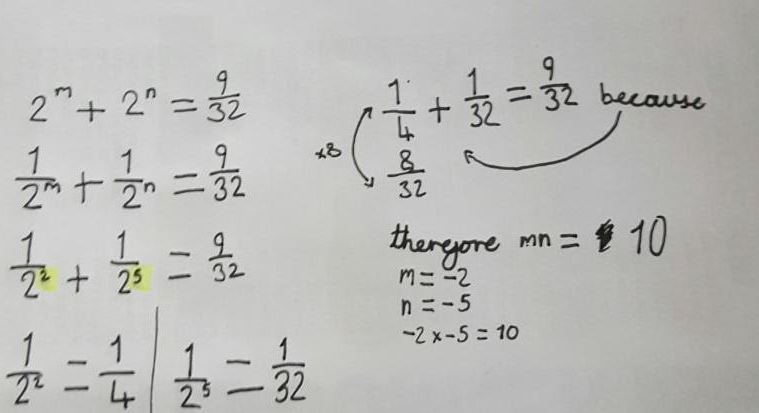 2^m + 2^n = 9/32
1/2^m + 1/2^n = 9/32
1/2^2 + 1/2^5 = 9/32
1/2^2 = 1/4 | 1/2^5 = 1/32
1/4 + 1/32 = 9/32 because
×8
8/32
therefore mn = 10
m = -2
n = -5
-2 x -5 = 10